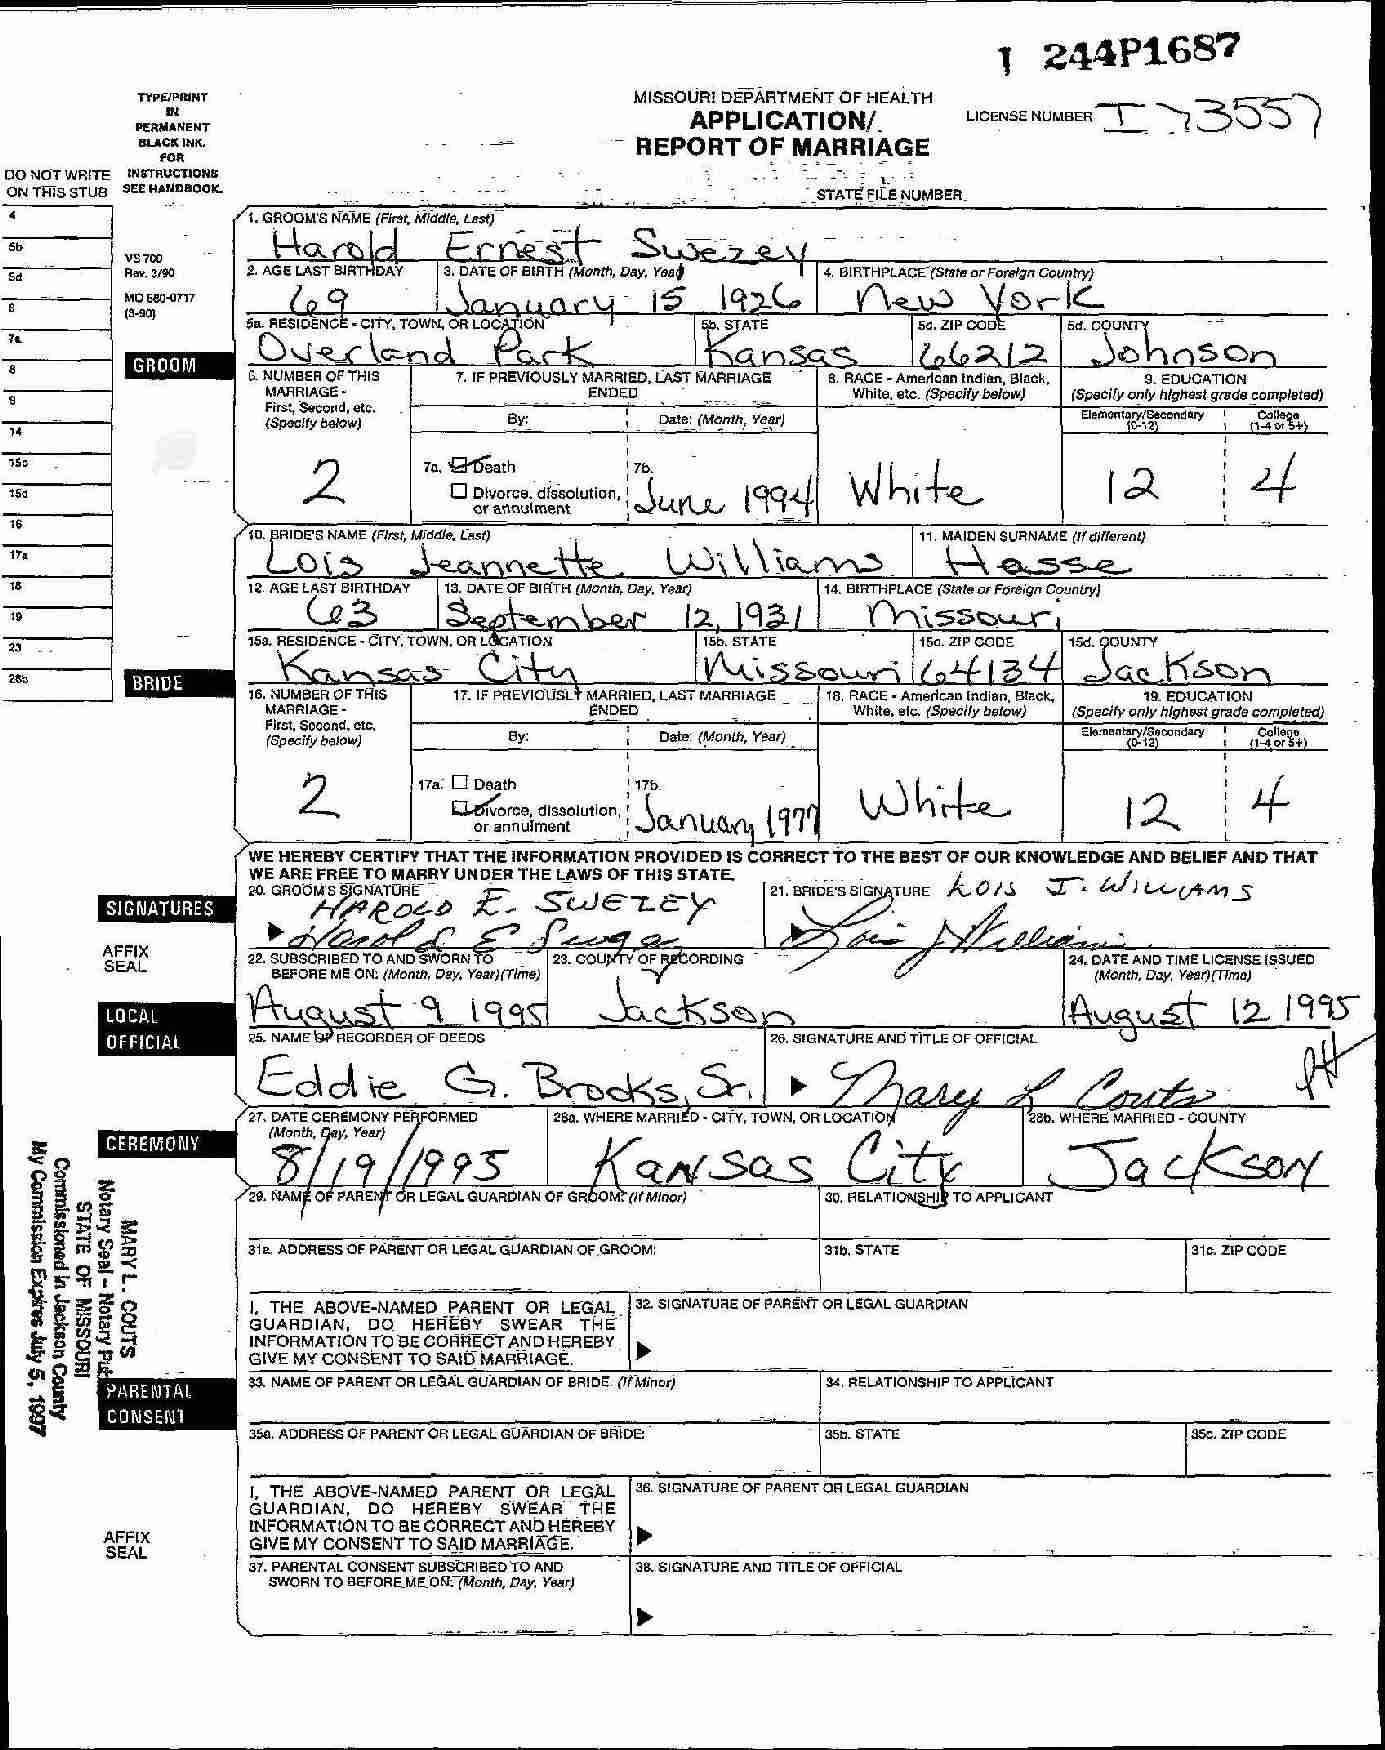 1 244P1687
TYPE/PRINT
IN
PERMANENT
BLACK INK.
FOR
INSTRUCTIONS
SEE HANDBOOK.
DO NOT WRITE
ON THIS STUB
MISSOURI DEPARTMENT OF HEALTH
APPLICATION/
REPORT OF MARRIAGE
LICENSE NUMBER I 73557
STATE FILE NUMBER
VS 700
Rev. 3/90
MO 580-0717
(3-90)
4
5b
5d
6
7a
8
9
14
15c
15d
16
17a
18
19
23
28b
GROOM
1. GROOM'S NAME (First, Middle, Last)
Harold Ernest Swezey
2. AGE LAST BIRTHDAY 3. DATE OF BIRTH (Month, Day, Year) 4. BIRTHPLACE (State or Foreign Country)
69 January 15 1926 New York
5a. RESIDENCE - CITY, TOWN, OR LOCATION 5b. STATE 5c. ZIP CODE 5d. COUNTY
Overland Park Kansas 66212 Johnson
6. NUMBER OF THIS MARRIAGE - First, Second, etc. (Specify below)
7. IF PREVIOUSLY MARRIED, LAST MARRIAGE ENDED
By: Date: (Month, Year)
8. RACE - American Indian, Black, White, etc. (Specify below)
9. EDUCATION
(Specify only highest grade completed)
Elementary/Secondary (0-12) College (1-4 or 5+)
2 7a. Death 7b. White 12 4
Divorce, dissolution, or annulment June 1994
BRIDE
10. BRIDE'S NAME (First, Middle, Last) 11. MAIDEN SURNAME (If different)
Lois Jeannette Williams Hasse
12. AGE LAST BIRTHDAY 13. DATE OF BIRTH (Month, Day, Year) 14. BIRTHPLACE (State or Foreign Country)
63 September 12, 1931 Missouri
15a. RESIDENCE - CITY, TOWN, OR LOCATION 15b. STATE 15c. ZIP CODE 15d. COUNTY
Kansas City Missouri 64134 Jackson
16. NUMBER OF THIS MARRIAGE - First, Second, etc. (Specify below)
17. IF PREVIOUSLY MARRIED, LAST MARRIAGE ENDED
By: Date: (Month, Year)
18. RACE - American Indian, Black, White, etc. (Specify below)
19. EDUCATION
(Specify only highest grade completed)
Elementary/Secondary (0-12) College (1-4 or 5+)
2 17a. Death 17b. White 12 4
Divorce, dissolution, or annulment January 1977
WE HEREBY CERTIFY THAT THE INFORMATION PROVIDED IS CORRECT TO THE BEST OF OUR KNOWLEDGE AND BELIEF AND THAT
WE ARE FREE TO MARRY UNDER THE LAWS OF THIS STATE.
SIGNATURES
20. GROOM'S SIGNATURE HAROLD E. SWEZEY
Harold E Swezey
21. BRIDE'S SIGNATURE LOIS J. WILLIAMS
Lois J Williams
AFFIX
SEAL
22. SUBSCRIBED TO AND SWORN TO BEFORE ME ON: (Month, Day, Year)(Time)
23. COUNTY OF RECORDING
24. DATE AND TIME LICENSE ISSUED (Month, Day, Year)(Time)
August 9 1995 Jackson August 12 1995
LOCAL
OFFICIAL
25. NAME OF RECORDER OF DEEDS 26. SIGNATURE AND TITLE OF OFFICIAL
Eddie G. Brooks, Sr. Mary L Couts
CEREMONY
27. DATE CEREMONY PERFORMED (Month, Day, Year)
28a. WHERE MARRIED - CITY, TOWN, OR LOCATION 28b. WHERE MARRIED - COUNTY
8/19/1995 Kansas City Jackson
MARY L. COUTS
Notary Seal - Notary Pub
STATE OF MISSOURI
Commissioned in Jackson County
My Commission Expires July 5, 1997
PARENTAL
CONSENT
29. NAME OF PARENT OR LEGAL GUARDIAN OF GROOM: (If Minor) 30. RELATIONSHIP TO APPLICANT
31a. ADDRESS OF PARENT OR LEGAL GUARDIAN OF GROOM: 31b. STATE 31c. ZIP CODE
I, THE ABOVE-NAMED PARENT OR LEGAL
GUARDIAN, DO HEREBY SWEAR THE
INFORMATION TO BE CORRECT AND HEREBY
GIVE MY CONSENT TO SAID MARRIAGE.
32. SIGNATURE OF PARENT OR LEGAL GUARDIAN
33. NAME OF PARENT OR LEGAL GUARDIAN OF BRIDE: (If Minor) 34. RELATIONSHIP TO APPLICANT
35a. ADDRESS OF PARENT OR LEGAL GUARDIAN OF BRIDE: 35b. STATE 35c. ZIP CODE
I, THE ABOVE-NAMED PARENT OR LEGAL
GUARDIAN, DO HEREBY SWEAR THE
INFORMATION TO BE CORRECT AND HEREBY
GIVE MY CONSENT TO SAID MARRIAGE.
36. SIGNATURE OF PARENT OR LEGAL GUARDIAN
AFFIX
SEAL
37. PARENTAL CONSENT SUBSCRIBED TO AND
SWORN TO BEFORE ME ON: (Month, Day, Year)
38. SIGNATURE AND TITLE OF OFFICIAL